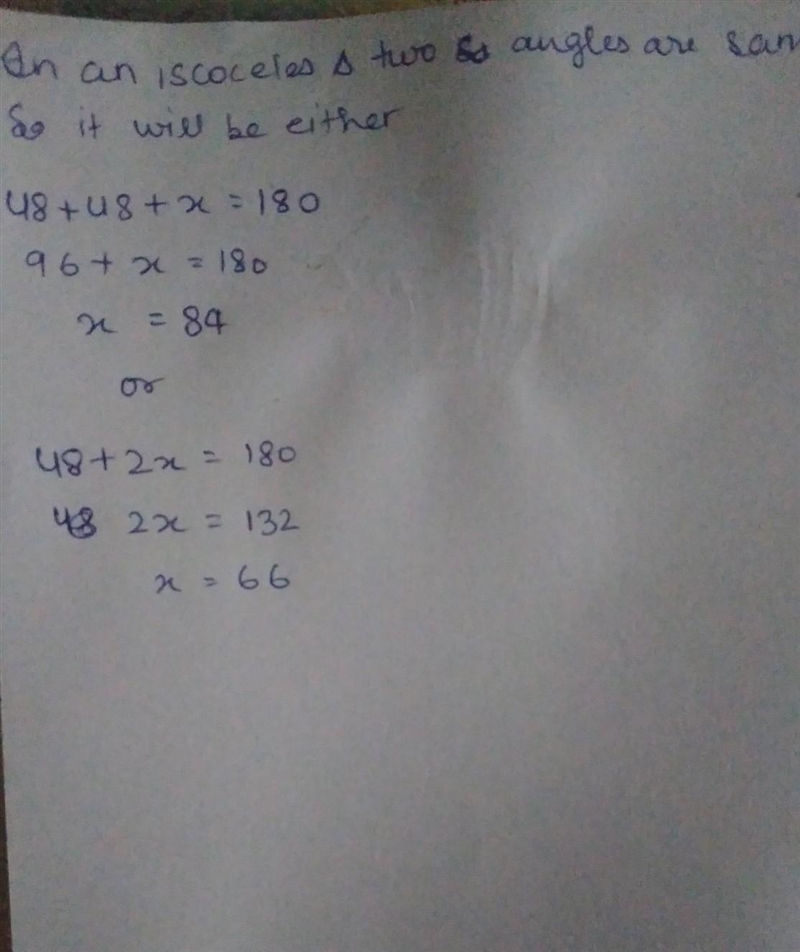 In an iscoceles Δ two angles are sam
So it will be either
48 + 48 + x = 180
96 + x = 180
x = 84
or
48 + 2x = 180
48 2x = 132
x = 66